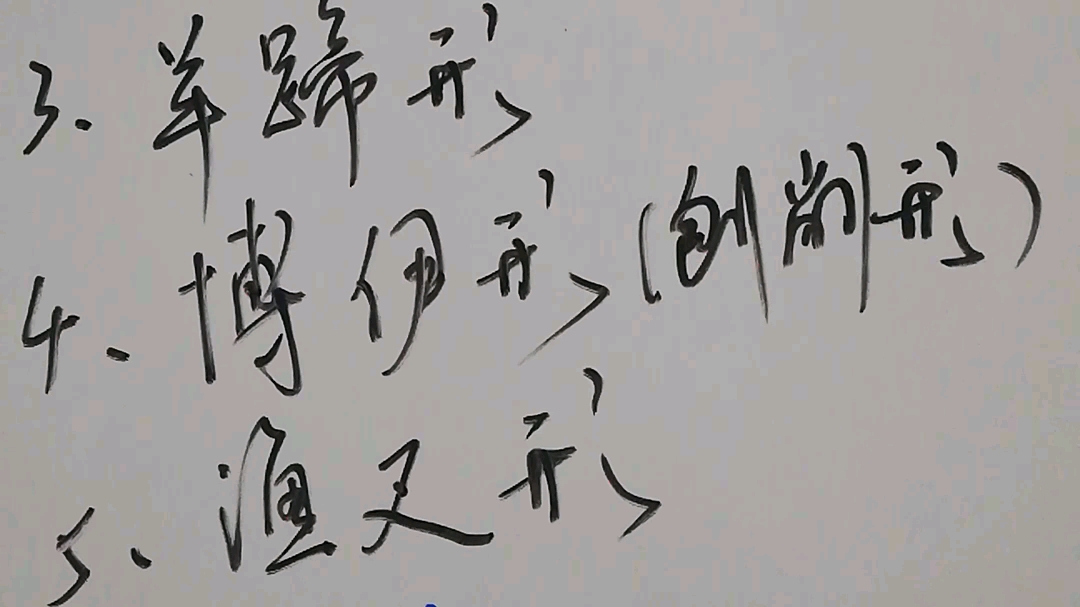 3. 羊蹄形
4、博伊形(刨削形)
5、渔叉形